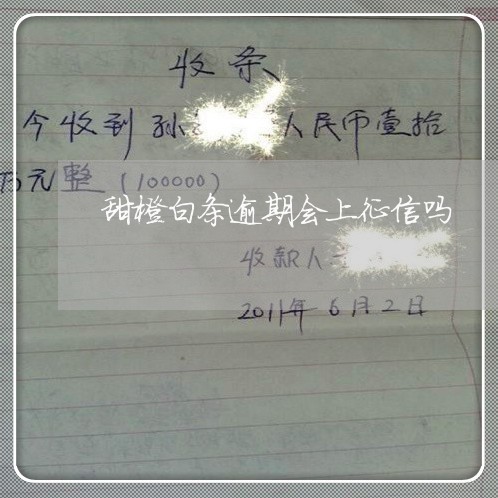 收条
今收到孙人民币壹拾
万元整(100000)
甜橙白条逾期会上征信吗
收款人
2011年6月2日